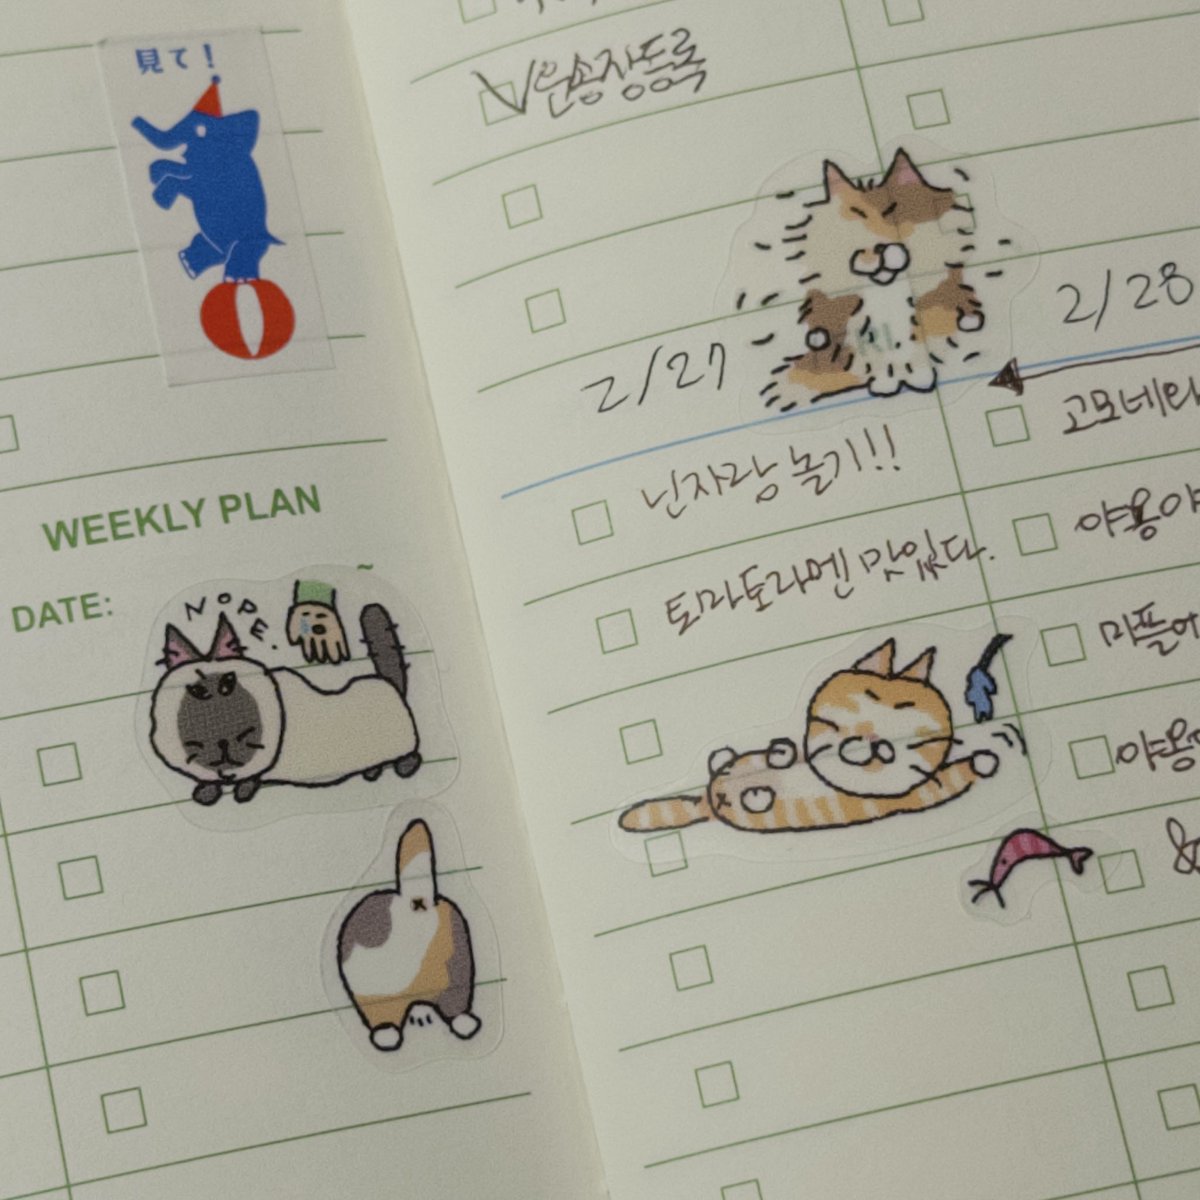 見て!
WEEKLY PLAN
DATE:
~
NOPE.
운송장등록
2/27
닌자랑 놀기!!
토마토라멘 맛있다.
2/28
고모네
야옹이
미플
야옹
&